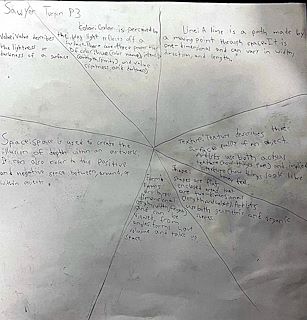 Sawyer P3
Color: Color is perceived by
light reflects off a
surface. There are three properties
of color: hue (color name), intensity
(strength/purity) and value
(lightness and darkness)
Value: Value describes the
the lightness or
darkness of a surface
Line: A line is a path made by
a moving point through space. It is
one-dimensional and can vary in width,
direction, and length.
Texture: Texture describes the
surface quality of an object.
Artists use both actual
texture (how things feel) and implied
(how things look like
Space: Space is used to create the
illusion of depth within an artwork
It can also refer to the positive
and negative space between, around, or
within objects
Form:
Forms
three
dimensional
(height, width, depth)
can be
viewed from
angles
volume and take up
space.
Shape:
Shapes are flat,
enclosed areas that
are two-dimensional
(length and width). Artists
use both geometric and organic